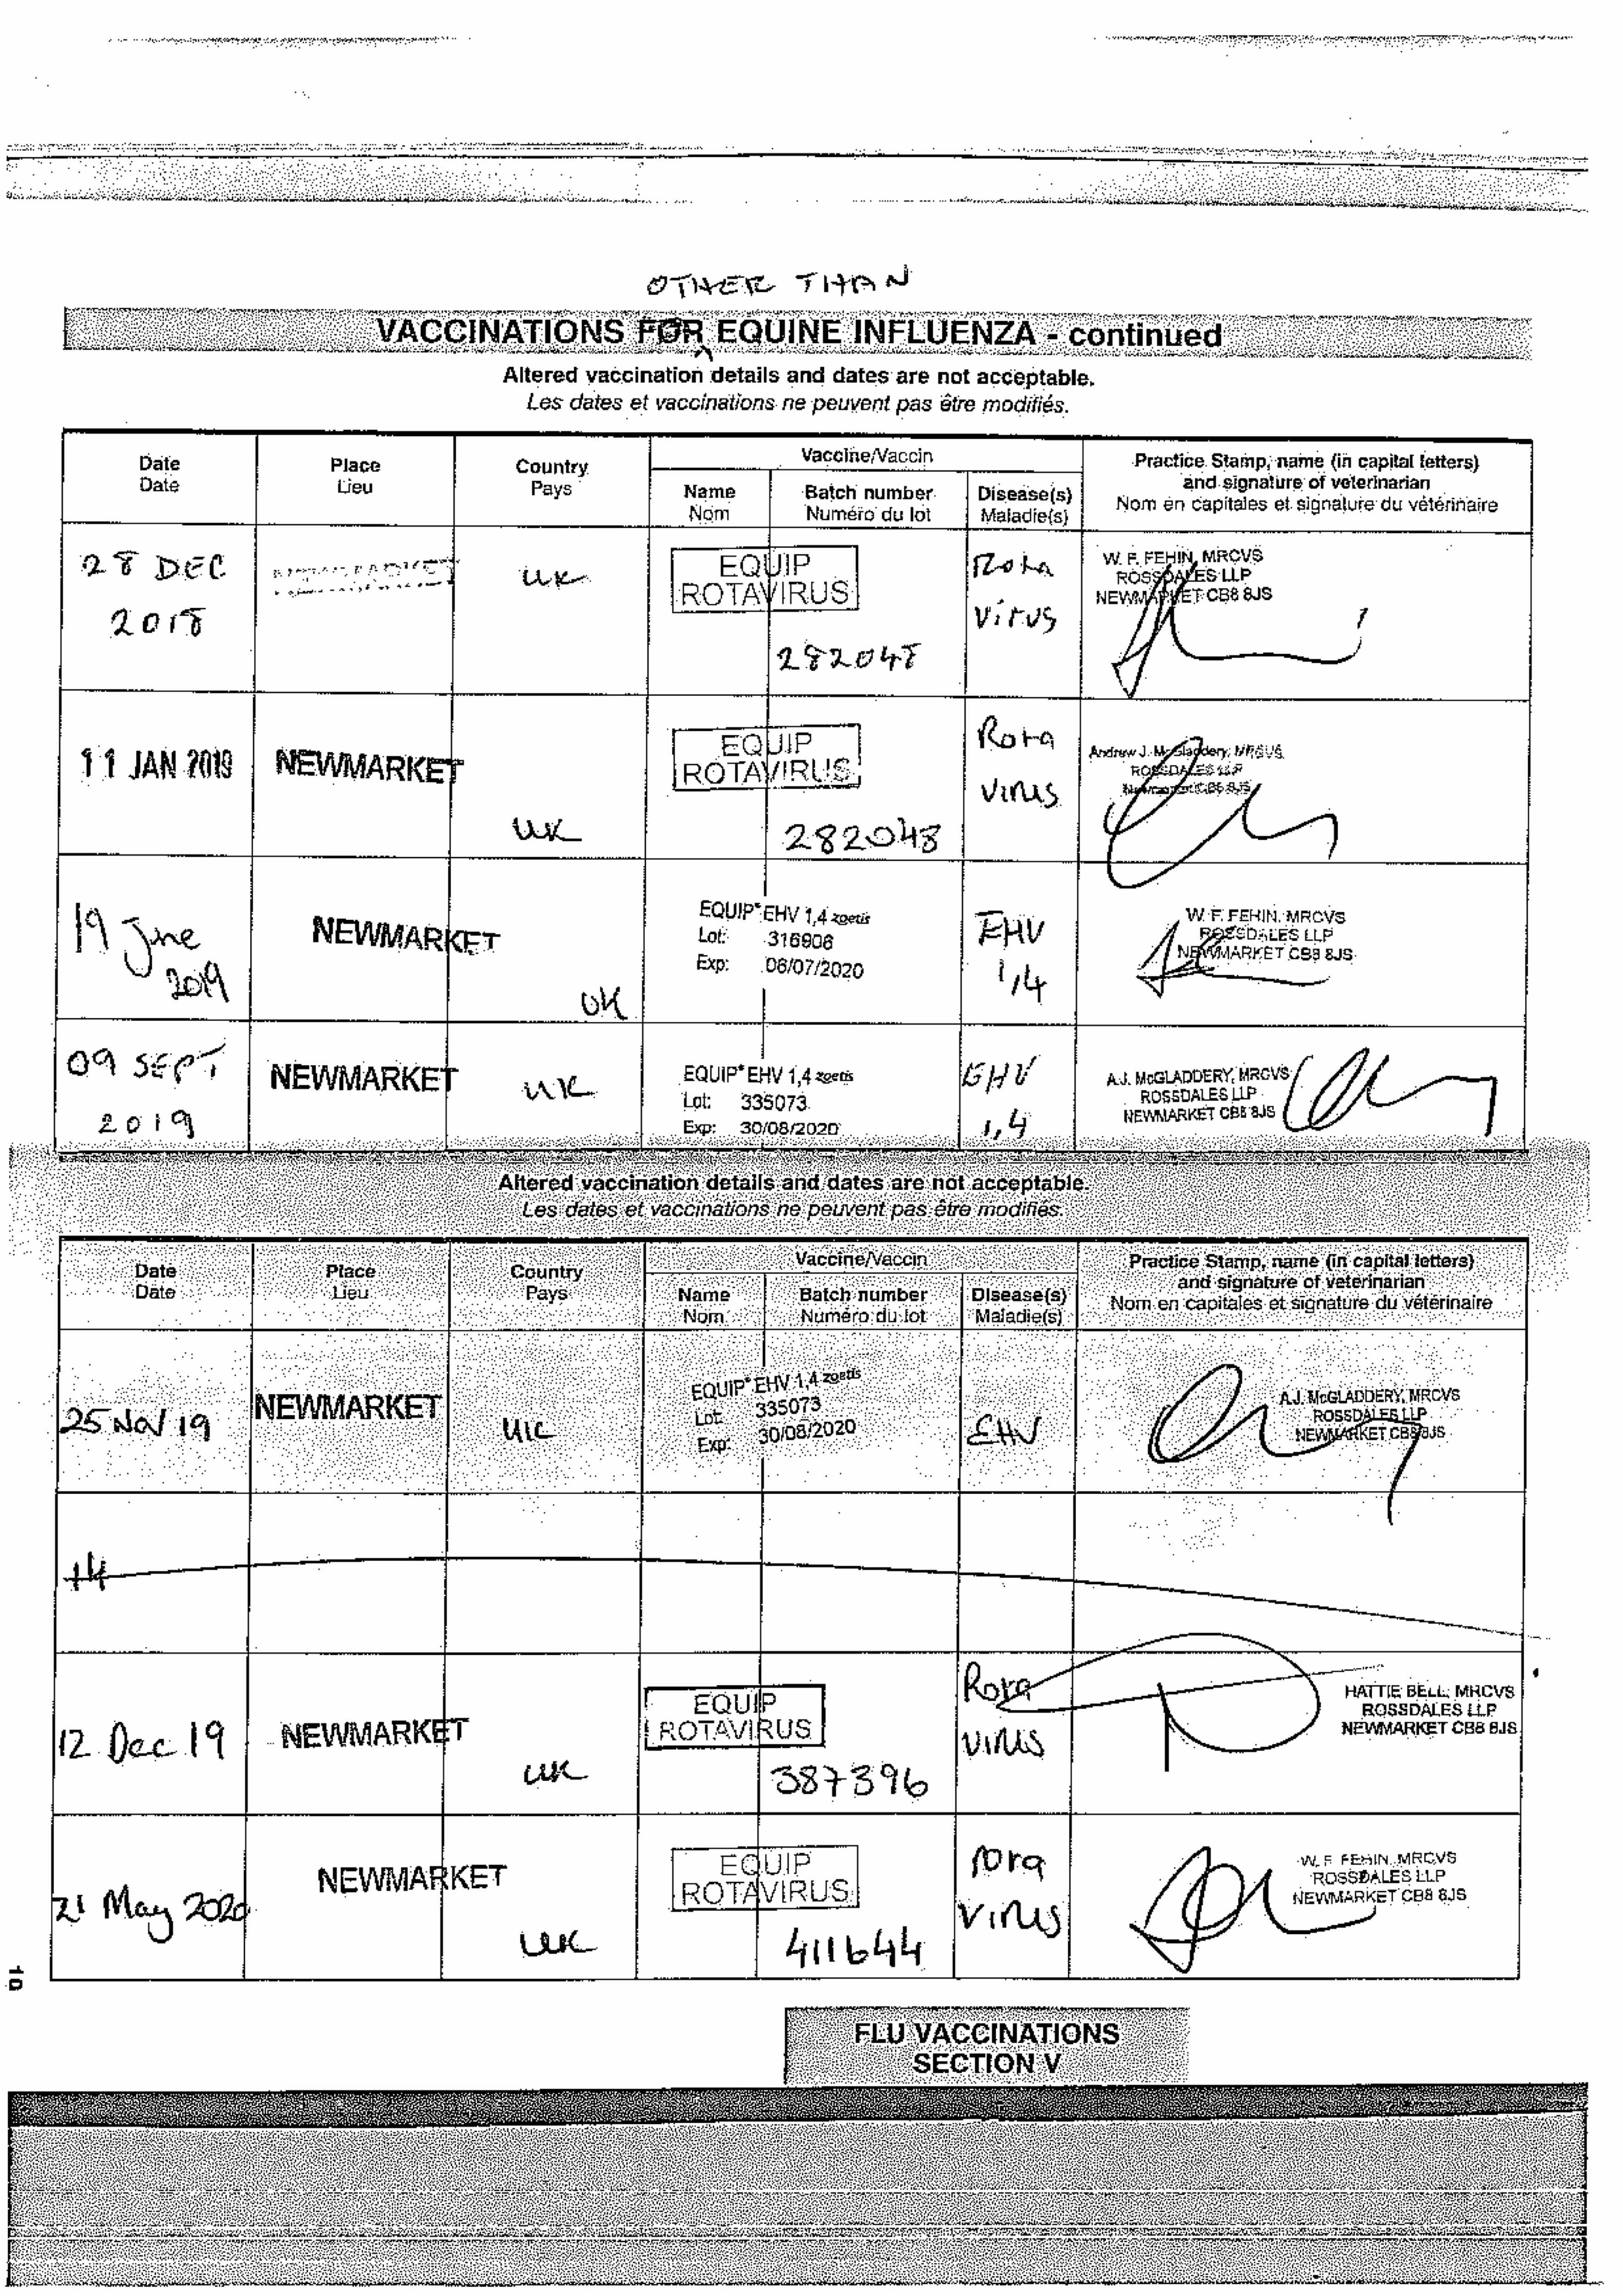 OTHER THAN
VACCINATIONS FOR EQUINE INFLUENZA - continued
Altered vaccination details and dates are not acceptable.
Les dates et vaccinations ne peuvent pas être modifiés.
Date Place Country Vaccine/Vaccin Practice Stamp, name (in capital letters)
Date Lieu Pays and signature of veterinarian
Name Batch number Disease(s) Nom en capitales et signature du vétérinaire
Nom Numéro du lot Maladie(s)
28 DEC NEWMARKET UK EQUIP Rota W. F. FEHIN, MRCVS
2018 ROTAVIRUS virus ROSSDALES LLP
282048 NEWMARKET CB8 8JS
11 JAN 2019 NEWMARKET EQUIP Rota Andrew J. McGladdery, MRCVS
ROTAVIRUS virus ROSSDALES LLP
UK 282048 Newmarket CB8 8JS
19 June NEWMARKET EQUIP* EHV 1,4 zoetis EHV W. F. FEHIN, MRCVS
2019 Lot: 316908 1,4 ROSSDALES LLP
UK Exp: 06/07/2020 NEWMARKET CB8 8JS
09 SEPT NEWMARKET UK EQUIP* EHV 1,4 zoetis EHV A.J. McGLADDERY, MRCVS
2019 Lot: 335073 1,4 ROSSDALES LLP
Exp: 30/08/2020 NEWMARKET CB8 8JS
Altered vaccination details and dates are not acceptable.
Les dates et vaccinations ne peuvent pas être modifiés.
Date Place Country Vaccine/Vaccin Practice Stamp, name (in capital letters)
Date Lieu Pays and signature of veterinarian
Name Batch number Disease(s) Nom en capitales et signature du vétérinaire
Nom Numéro du lot Maladie(s)
25 Nov 19 NEWMARKET UK EQUIP* EHV 1,4 zoetis EHV A.J. McGLADDERY, MRCVS
Lot: 335073 ROSSDALES LLP
Exp: 30/08/2020 NEWMARKET CB8 8JS
14
12 Dec 19 NEWMARKET EQUIP Rota HATTIE BELL, MRCVS
ROTAVIRUS virus ROSSDALES LLP
UK 387396 NEWMARKET CB8 8JS
21 May 2020 NEWMARKET EQUIP rota W. F. FEHIN, MRCVS
ROTAVIRUS virus ROSSDALES LLP
UK 411644 NEWMARKET CB8 8JS
10
FLU VACCINATIONS
SECTION V